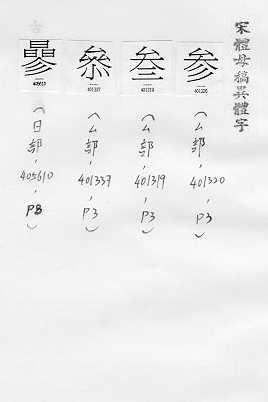 宋體母稿異體字
参
401320
(厶部,401320,P3)
叁
401319
(厶部,401319,P3)
叅
401337
(厶部,401337,P3)
曑
405610
(日部,405610,P8)